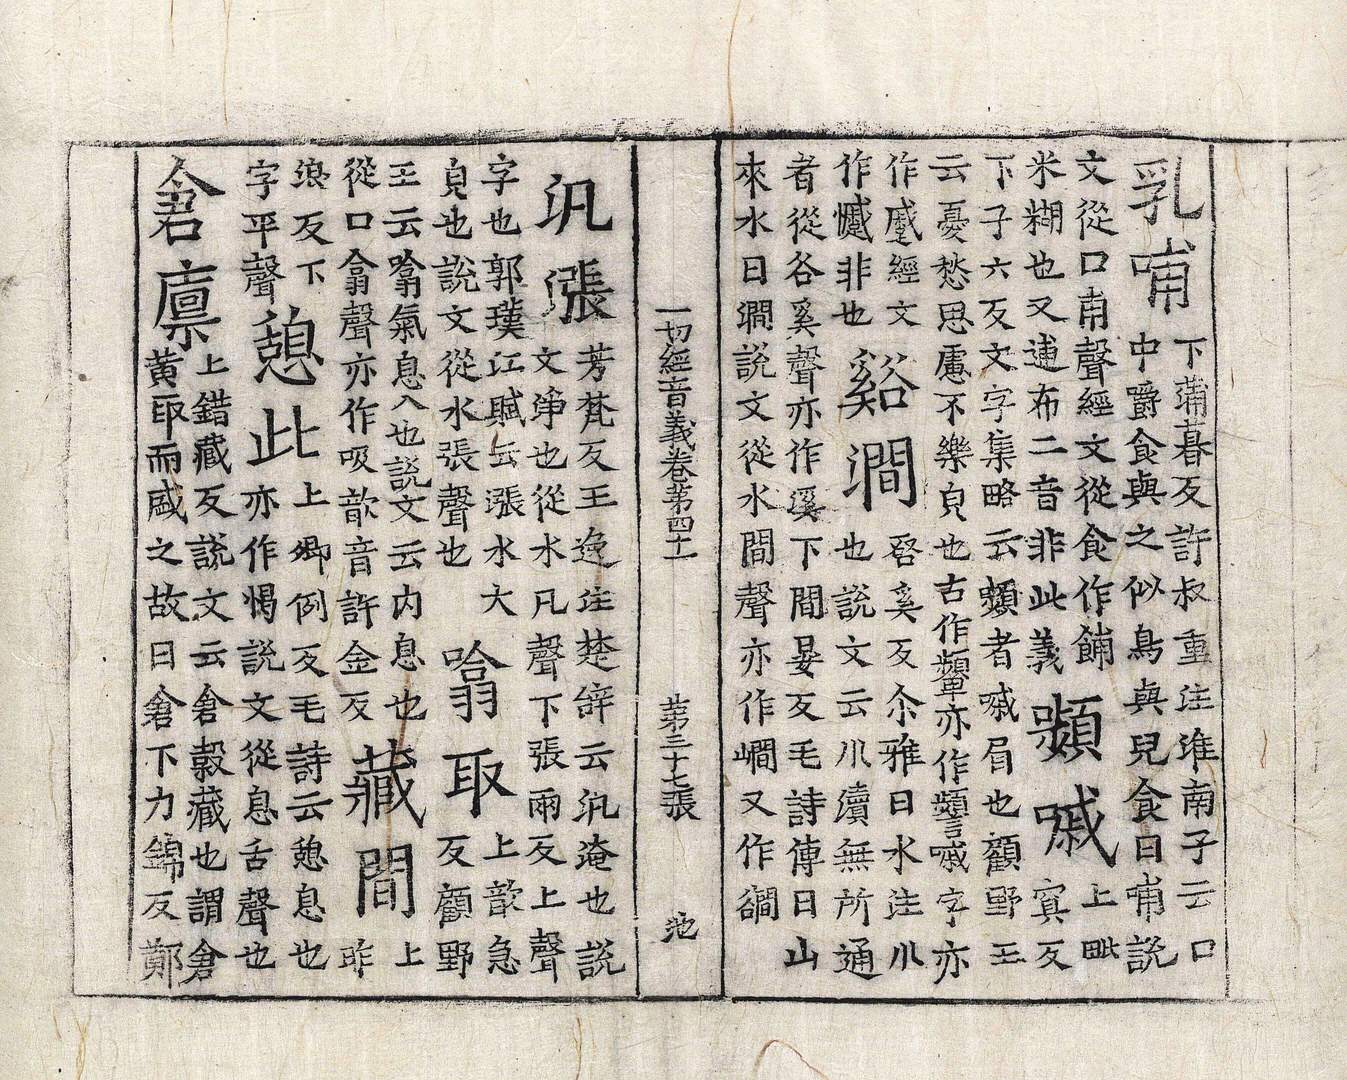 乳哺下蒲暮反許叔重注淮南子云口
中嚼食與之似鳥與兒食曰哺說
文從口甫聲經文從食作餔
米糊也又逋布二音非此義
顰嘁上毗
寘反
下子六反文字集略云顰者嘁眉也顧野王
云憂愁思慮不樂皃也古作顰亦作嘁字亦
作慼經文
作慽非也
谿澗啓奚反尒雅曰水注川
也說文云川瀆無所通
者從谷奚聲亦作溪下間晏反毛詩傳曰山
夾水曰澗說文從水間聲亦作㵎又作
一切經音義卷第四十一 苐三十七張 池
汎漲芳梵反王逸注楚辝云汎淹也說
文浮也從水凡聲下張兩反上聲
字也郭璞江賦云漲水大
皃也說文從水張聲也
噏取上歆急
反顧野
王云噏氣息入也說文云內息也
從口翕聲亦作吸歆音許金反
藏間上
昨
浪反下
字平聲
憩此上卿例反毛詩云憩息也
亦作愒說文從息舌聲也
倉廩上錯藏反說文云倉榖藏也謂倉
黃取而藏之故曰倉下力錦反鄭